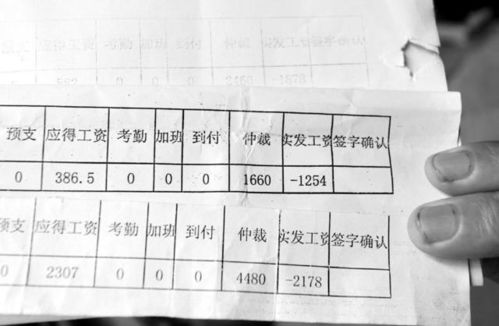 562 0 0 0 2460 -1878
预支 应得工资 考勤 加班 到付 仲裁 实发工资 签字确认
0 386.5 0 0 0 1660 -1254
预支 应得工资 考勤 加班 到付 仲裁 实发工资 签字确认
0 2307 0 0 0 4480 -2178